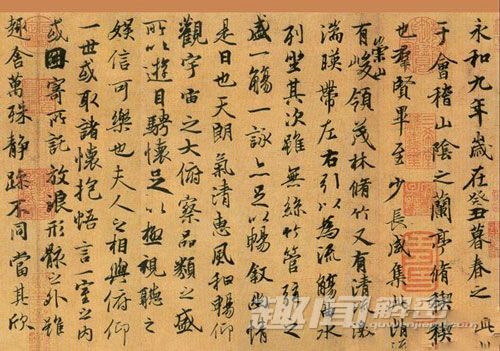 永和九年歲在癸丑暮春之初
于會稽山陰之蘭亭脩稧事
也羣賢畢至少長咸集此地
有崇山峻領茂林脩竹又有清流激
湍暎帶左右引以為流觴曲水
列坐其次雖無絲竹管弦之
盛一觴一詠亦足以暢敘幽情
是日也天朗氣清惠風和暢仰
觀宇宙之大俯察品類之盛
所以遊目騁懷足以極視聽之
娛信可樂也夫人之相與俯仰
一世或取諸懷抱悟言一室之內
或因寄所託放浪形骸之外雖
趣舍萬殊靜躁不同當其欣
趣闻解密